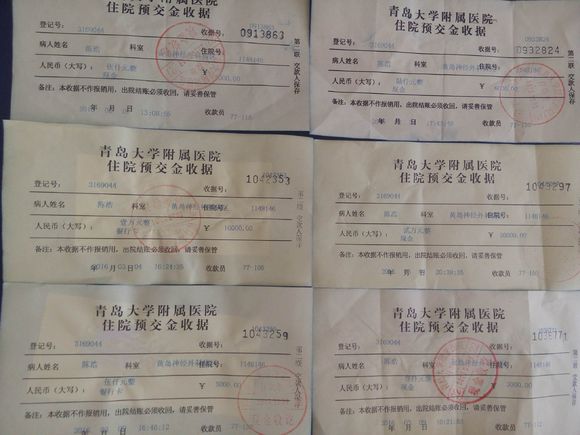 青岛大学附属医院
住院预交金收据
登记号： 3169044 收据号： 0913863
病人姓名 陈浩 科室 住院号 1148146
人民币（大写）： 伍仟元整 ￥ 5000.00
现金
备注：本收据不作报销用，出院结账必须收回，请妥善保管
年 月 日 收款员 77-116
第二联 交款人保存
青岛大学附属医院
住院预交金收据
登记号： 3169044 收据号： 0932824
病人姓名 陈浩 科室 住院号 1148146
人民币（大写）： 陆仟元整 ￥
现金
备注：本收据不作报销用，出院结账必须收回，请妥善保管
年 月 日 收款员
第二联 交款人保存
青岛大学附属医院
住院预交金收据
登记号： 3169044 收据号： 1042353
病人姓名 陈浩 科室 黄岛神经外科 住院号 1148146
人民币（大写）： 壹万元整 ￥ 10000.00
银行卡
备注：本收据不作报销用，出院结账必须收回，请妥善保管
2016 年 03 月 04 日 16:24:35 收款员 77-106
第二联 交款人保存
青岛大学附属医院
住院预交金收据
登记号： 3169044 收据号： 1043297
病人姓名 陈浩 科室 黄岛神经外科 住院号 1148146
人民币（大写）： 贰万元整 ￥ 20000.00
现金
备注：本收据不作报销用，出院结账必须收回，请妥善保管
年 月 日 20:39:35 收款员 77-106
青岛大学附属医院
住院预交金收据
登记号： 3169044 收据号： 1043259
病人姓名 陈浩 科室 黄岛神经外科 住院号 1148146
人民币（大写）： 伍仟元整 ￥ 5000.00
银行卡
备注：本收据不作报销用，出院结账必须收回，请妥善保管
年 月 日 16:46:12 收款员 77-116
第二联 交款人保存
青岛大学附属医院
住院预交金收据
登记号： 3169044 收据号：
病人姓名 陈浩 科室 住院号 1148146
人民币（大写）： 伍仟元整 ￥ 5000.00
现金
备注：本收据不作报销用，出院结账必须收回，请妥善保管
年 月 日 收款员
第二联 交款人保存